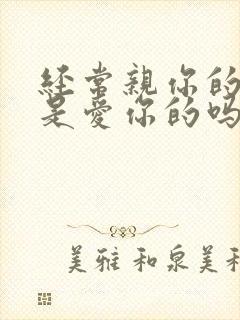 经常親你的
是愛你的吗
美雅和泉美和